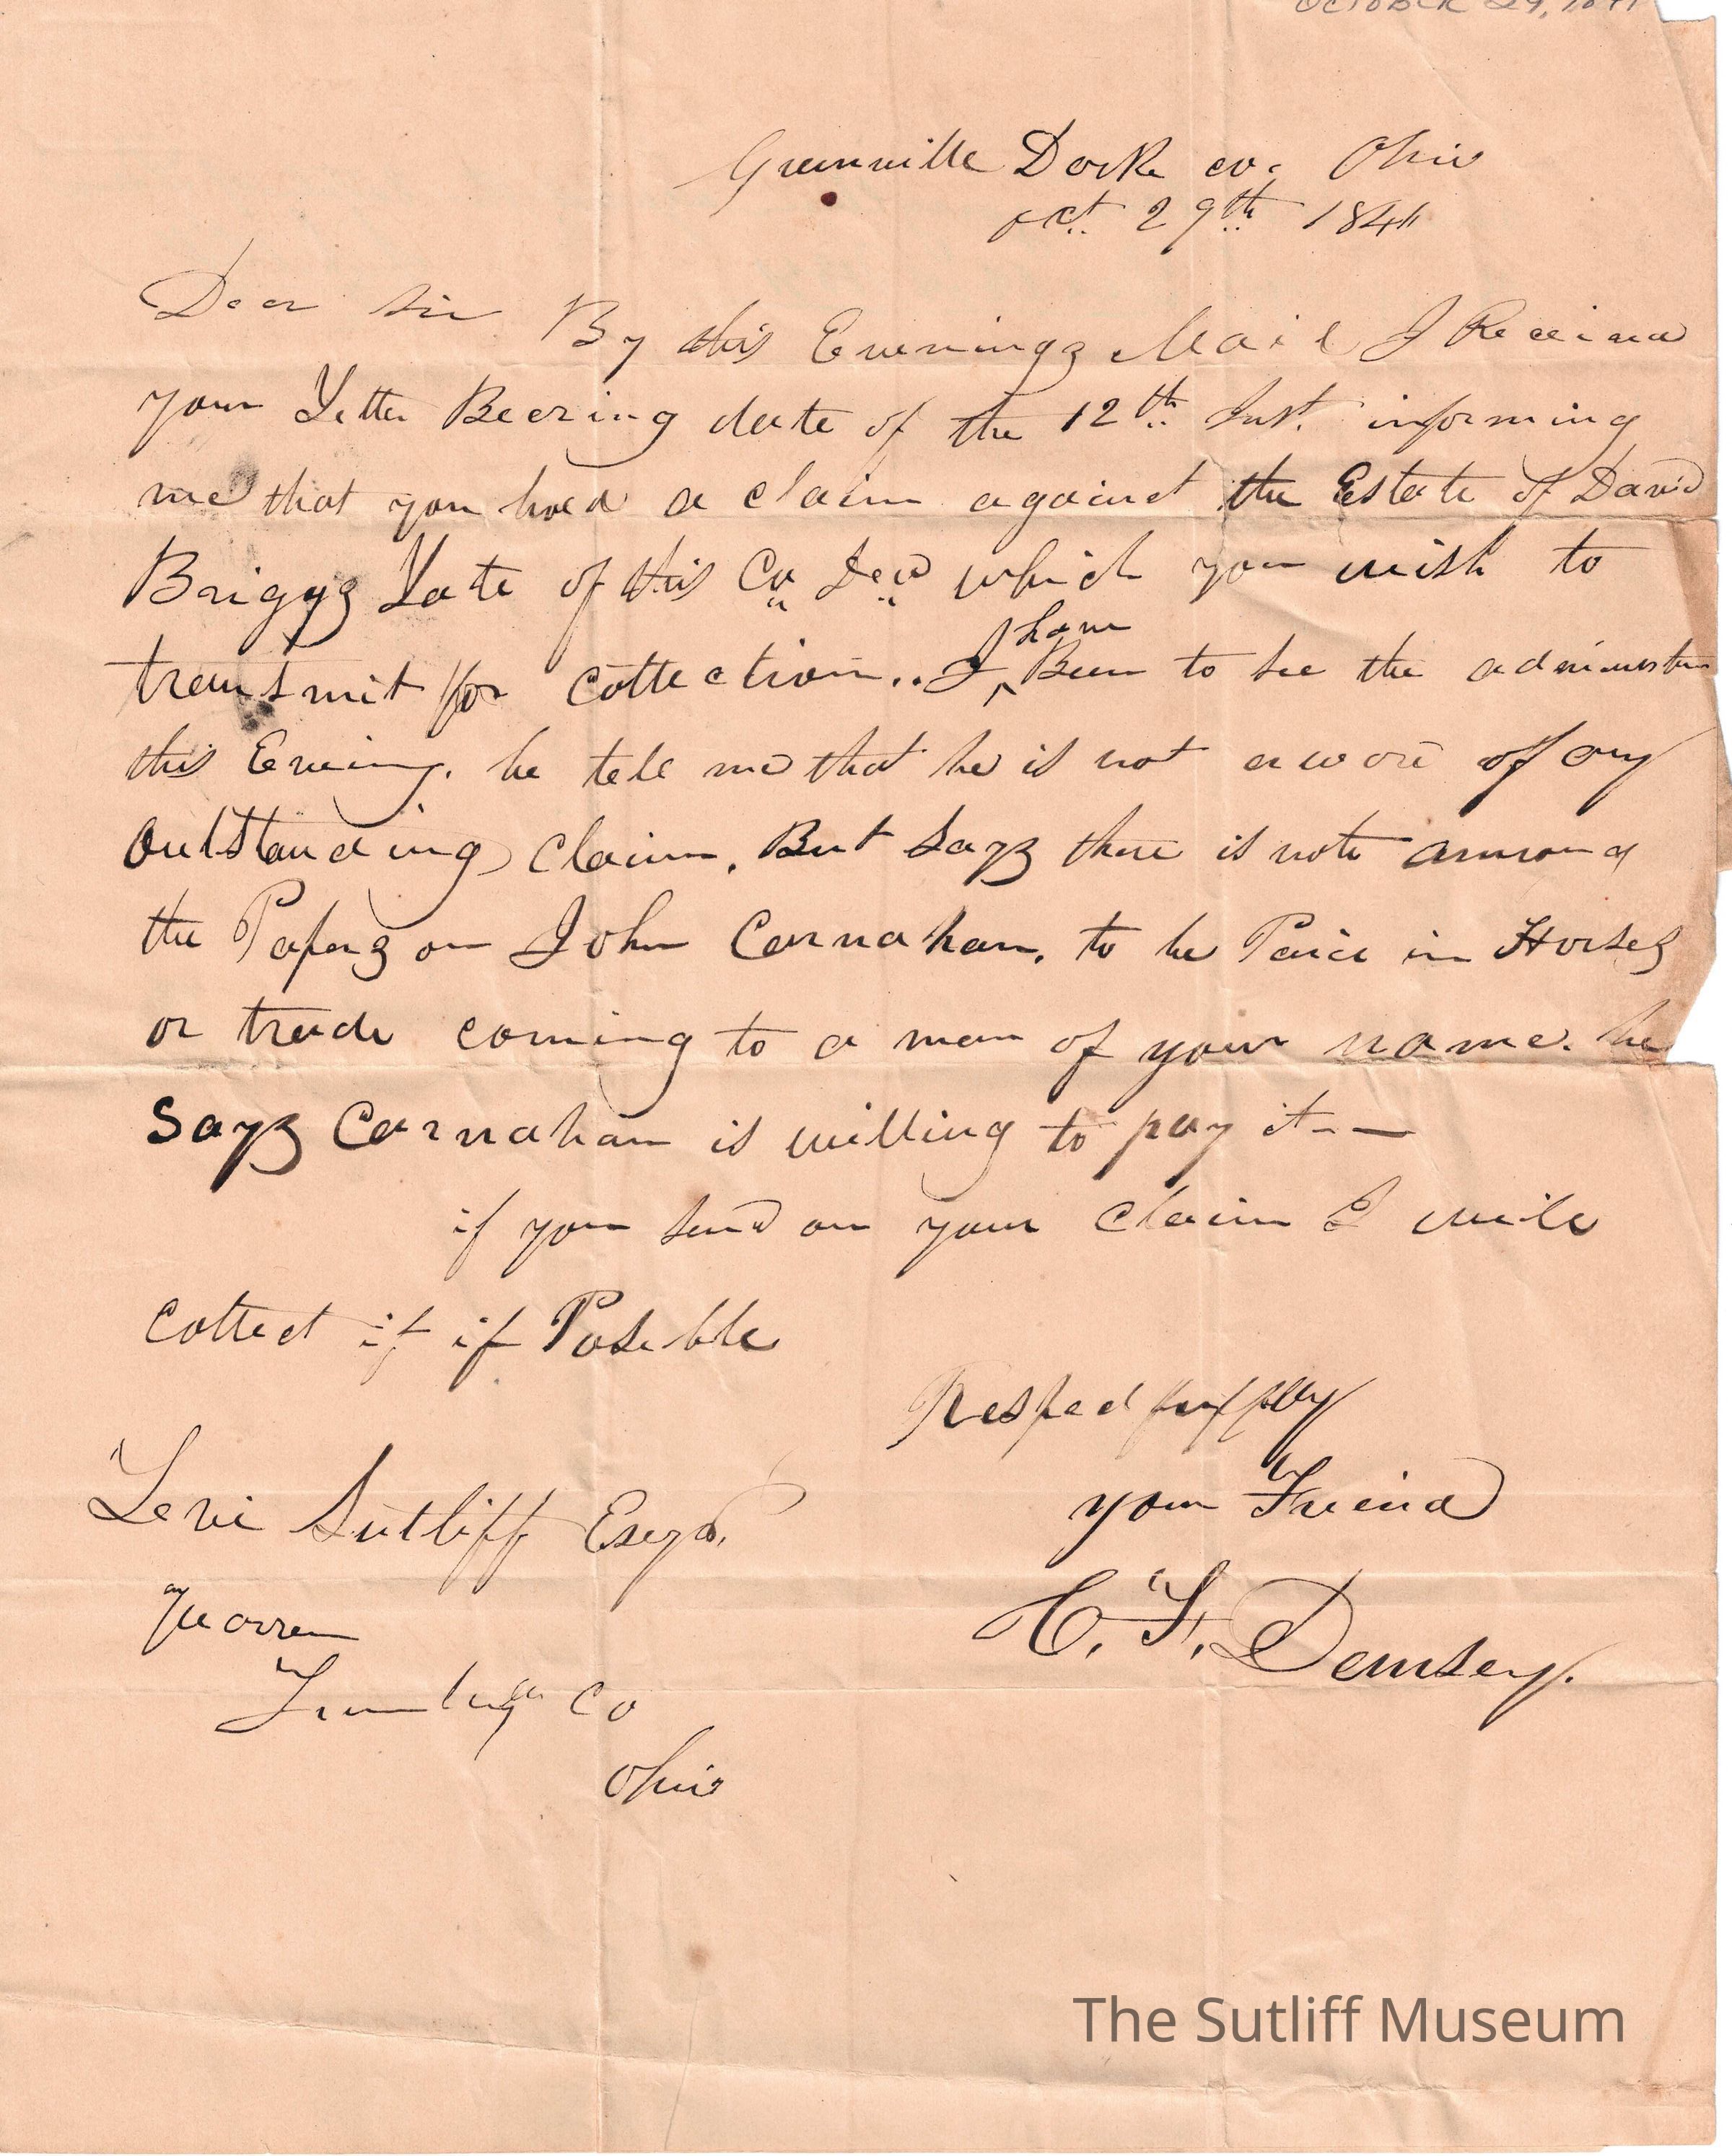 OCTOBER 29, 1841
Greenville Dark co. Ohio
oct. 29th 1841
Dear Sir By this Evenings Mail I Received
your Letter Beering date of the 12th Inst. informing
me that you hold a claim against the Estate of David
Briggs Late of this Co Decd which you wish to
transmit for collection.. I have Been to see the administer
this Evening. he tell me that he is not aware of any
outstanding claim. But Says there is note among
the Papers on John Carnahan. to be Paid in Horses
or trade coming to a man of your name. he
Says Carnahan is willing to pay it --
if you send on your claim I will
collect it if Posible
Respectfully
your Friend
Levi Sutliff Esqr.
Warren
Trumbull Co
Ohio
C. F. Demsey.
The Sutliff Museum